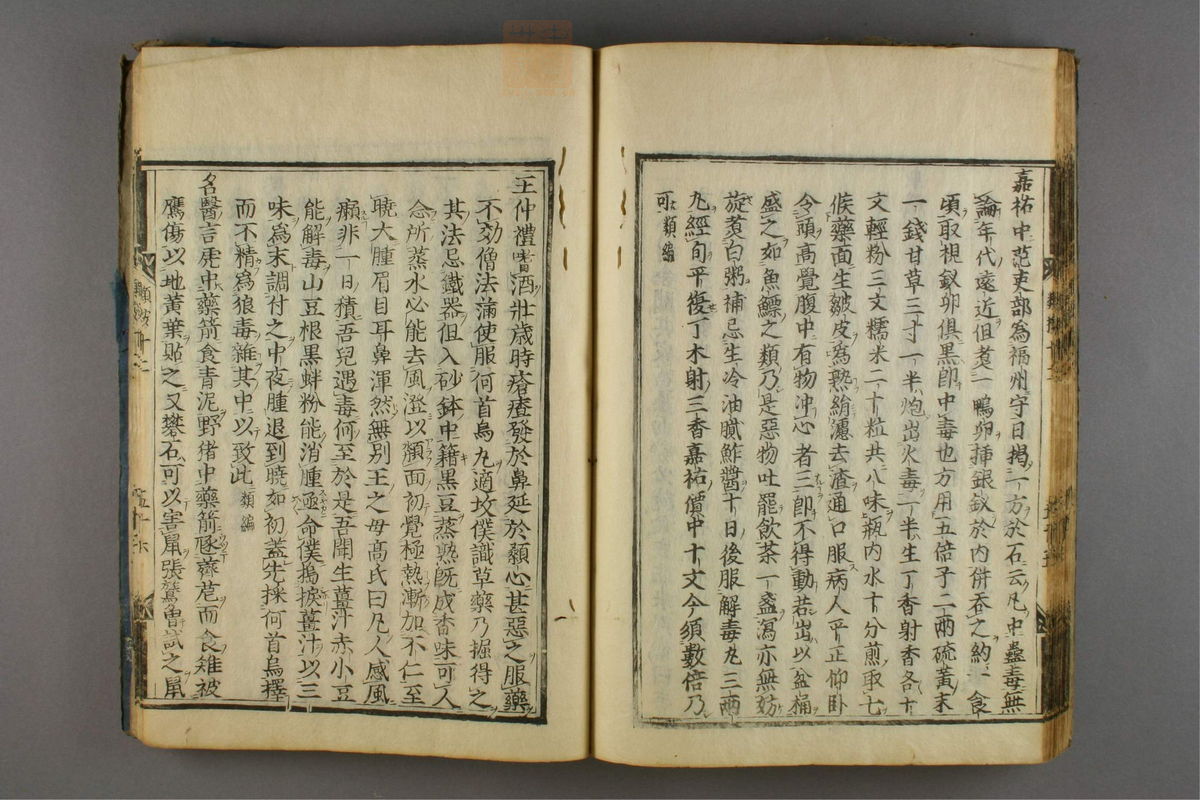 嘉祐中范吏部為福州守日揭一方於石云凡中蠱毒無
論年代遠近但煮一鴨卵挿銀釵於內併吞之約一食
頃取視釵卵俱黑即中毒也方用五倍子二兩硫黃末
一錢甘草三寸一半炮出火毒一半生丁香射香各十
文輕粉三文糯米二十粒共八味瓶内水十分煎取七
候藥面生皺皮為熟絹濾去渣通口服病人平正仰卧
令頭高覺腹中有物冲心者三即不得動若出以盆桶
盛之如魚鰾之類乃是惡物吐罷飲茶一盞瀉亦無妨
旋煮白粥補忌生冷油膩鮓醬十日後服解毒丸三兩
丸經旬平復丁木射三香嘉祐價中十文今須數倍乃
可類編
王仲禮嗜酒壯歲時瘡㾴發於鼻延於顙心甚惡之服藥
不効僧法滿使服何首烏丸適坟僕識草藥乃掘得之
其法忌鐵器但入砂鉢中籍黑豆蒸熟既成香味可人
念所蒸水必能去風澄以頮面初覺極熱漸加不仁至
曉大腫眉目耳鼻渾然無別王之母髙氏曰凡人感風
癩非一日積吾兒遇毒何至於是吾聞生薑汁赤小豆
能解毒山豆根黑蚌粉能消腫亟命僕搗捩薑汁以三
味為末調付之中夜腫退到曉如初蓋先採何首烏擇
而不精為狼毒雜其中以致此類編
名醫言虎中藥箭食青泥野猪中藥箭豗薺苨而食雉被
鷹傷以地黃葉貼之又礬石可以害䑕張鷟曾試之䑕